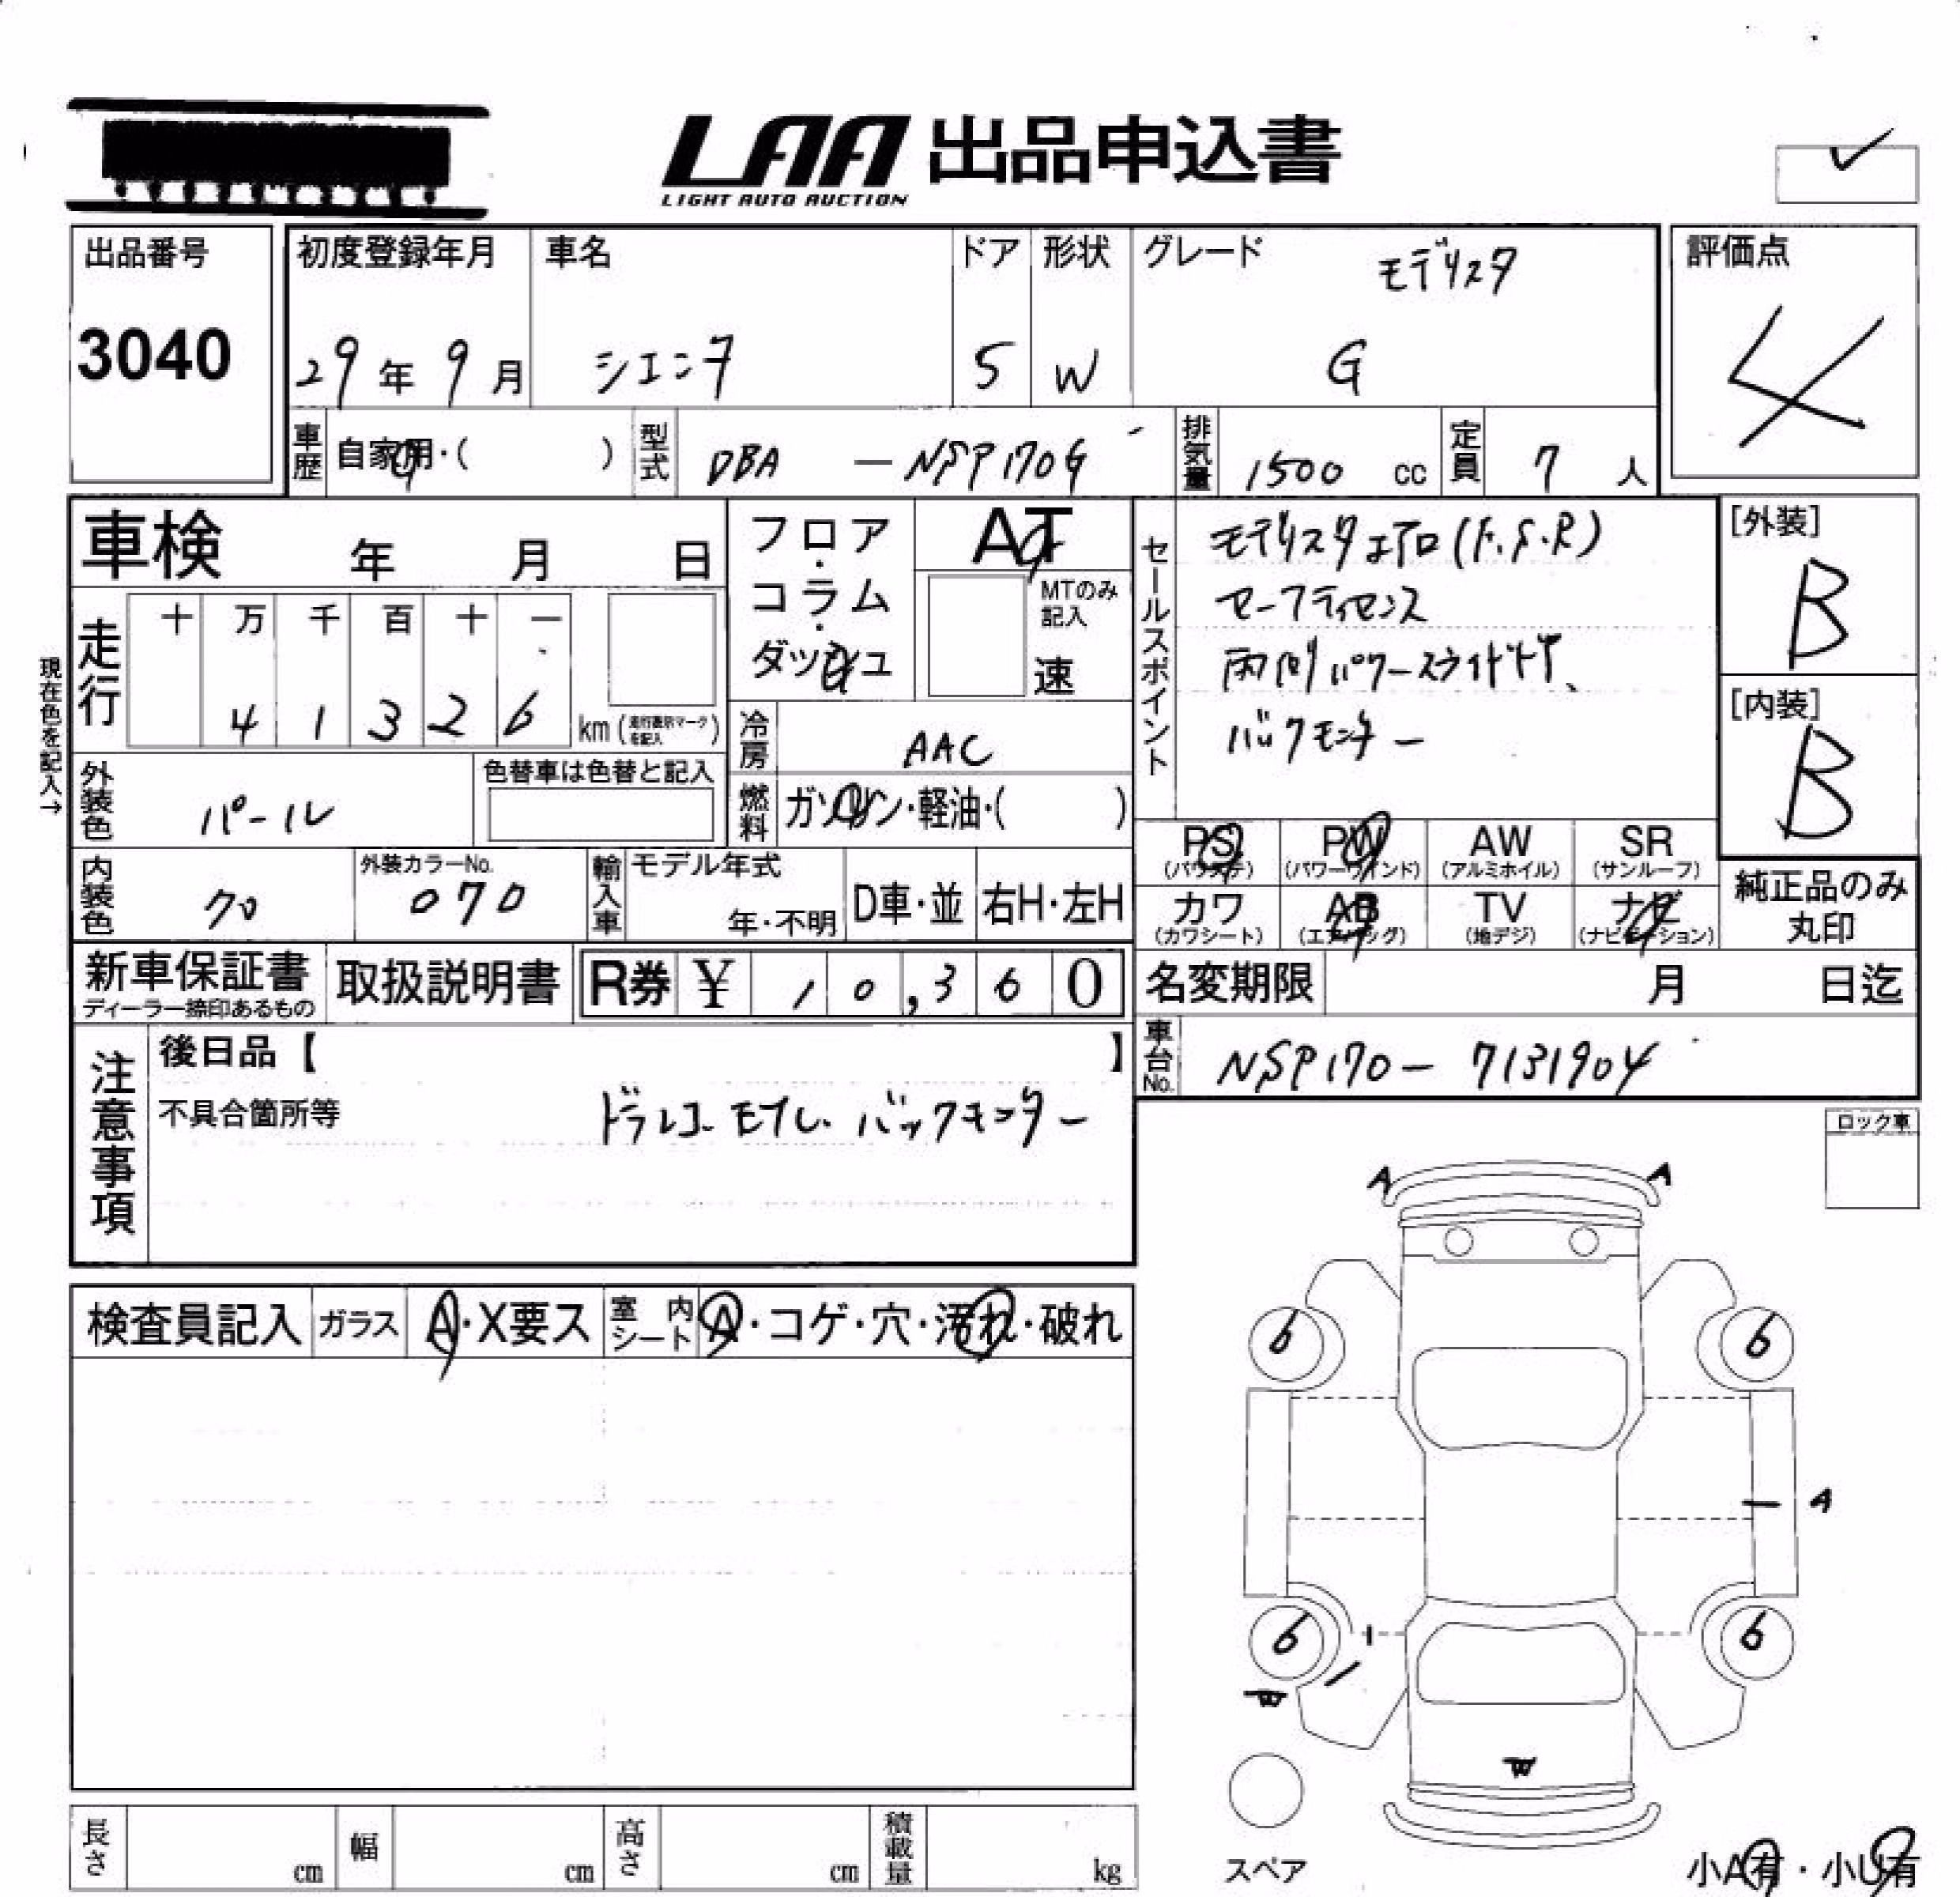 LAA 出品申込書
LIGHT AUTO AUCTION
出品番号
3040
初度登録年月
29年 9月
車名
シエンタ
ドア
5
形状
W
グレード
モデリスタ
G
評価点
4
車歴 自家用・( )
型式 DBA － NSP170G
排気量 1500 cc
定員 7 人
車検 年 月 日
フロア・コラム・ダッシュ
AT
MTのみ記入
速
セールスポイント
モデリスタエアロ(F.S.R)
セーフティセンス
両側パワースライドドア、
バックモニター
[外装]
B
[内装]
B
現在色を記入→
走行
十 万 千 百 十 一
4 1 3 2 6 km (走行表示マークを記入)
冷房 AAC
外装色 パール
色替車は色替と記入
燃料 ガソリン・軽油・( )
PS
(パワステ)
PW
(パワーウインド)
AW
(アルミホイル)
SR
(サンルーフ)
内装色 クロ
外装カラーNo.
070
輸入車 モデル年式
年・不明
D車・並
右H・左H
カワ
(カワシート)
AB
(エアバッグ)
TV
(地デジ)
ナビ
(ナビゲーション)
純正品のみ
丸印
新車保証書
ディーラー捺印あるもの
取扱説明書
R券 ¥ 10,360
名変期限 月 日迄
車台No. NSP170－7131904
注意事項
後日品【 】
不具合箇所等
ドラレコ モプレ. バックモニター
ロック車
A A
検査員記入
ガラス A・X要ス
室内シート A・コゲ・穴・汚れ・破れ
6 6
A
6 6
W
W
スペア
長さ cm
幅 cm
高さ cm
積載量 kg
小A有・小U有